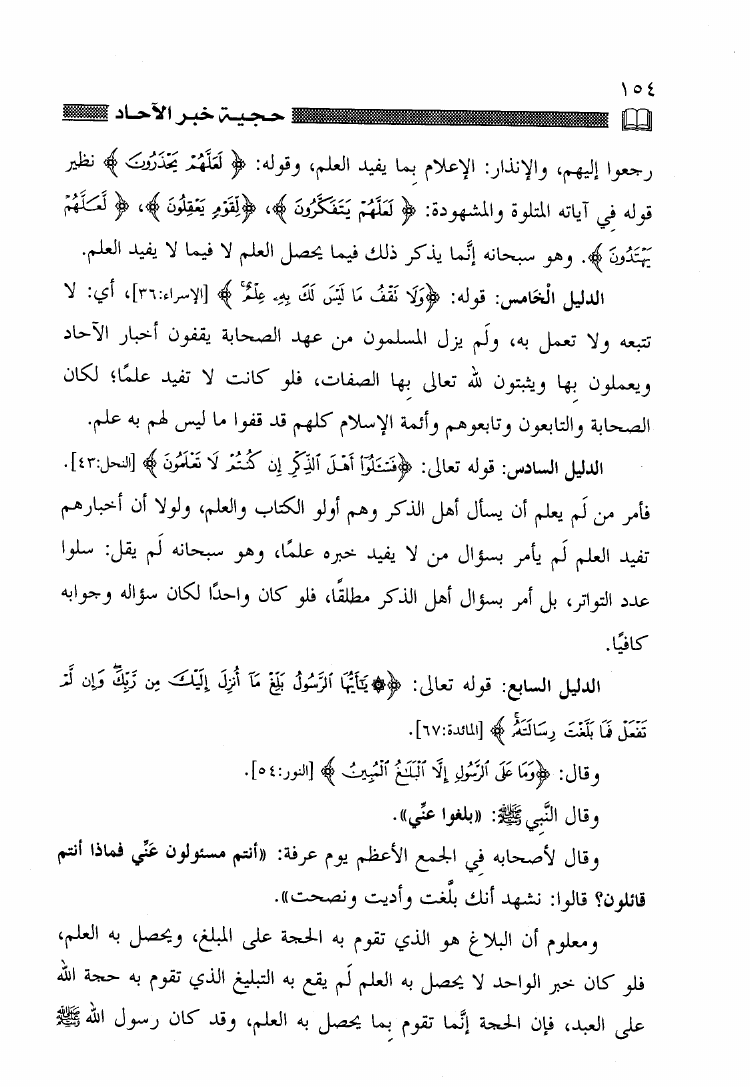 ١٥٤
حجية خبر الآحاد
رجعوا إليهم، والإنذار: الإعلام بِما يفيد العلم، وقوله: ﴿ لَعَلَّهُمْ يَحْذَرُونَ ﴾ نظير
قوله في آياته المتلوة والمشهودة: ﴿ لَعَلَّهُمْ يَتَفَكَّرُونَ ﴾، ﴿لِقَوْمٍ يَعْقِلُونَ ﴾، ﴿ لَعَلَّهُمْ
يَهْتَدُونَ ﴾. وهو سبحانه إنَّما يذكر ذلك فيما يحصل العلم لا فيما لا يفيد العلم.
الدليل الْخَامس: قوله: ﴿وَلَا نَقْفُ مَا لَيْسَ لَكَ بِهِۦ عِلْمٌ ﴾ [الإسراء:٣٦]، أي: لا
تتبعه ولا تعمل به، ولَم يزل المسلمون من عهد الصحابة يقفون أخبار الآحاد
ويعملون بِها ويثبتون لله تعالى بِها الصفات، فلو كانت لا تفيد علمًا؛ لكان
الصحابة والتابعون وتابعوهم وأئمة الإسلام كلهم قد قفوا ما ليس لهم به علم.
الدليل السادس: قوله تعالى: ﴿فَسْـَٔلُوٓا۟ أَهْلَ ٱلذِّكْرِ إِن كُنتُمْ لَا تَعْلَمُونَ ﴾ [النحل:٤٣].
فأمر من لَم يعلم أن يسأل أهل الذكر وهم أولو الكتاب والعلم، ولولا أن أخبارهم
تفيد العلم لَم يأمر بسؤال من لا يفيد خبره علمًا، وهو سبحانه لَم يقل: سلوا
عدد التواتر، بل أمر بسؤال أهل الذكر مطلقًا، فلو كان واحدًا لكان سؤاله وجوابه
كافيًا.
الدليل السابع: قوله تعالى: ﴿۞ يَـٰٓأَيُّهَا ٱلرَّسُولُ بَلِّغْ مَآ أُنزِلَ إِلَيْكَ مِن رَّبِّكَ ۖ وَإِن لَّمْ
تَفْعَلْ فَمَا بَلَّغْتَ رِسَالَتَهُۥ ۚ ﴾ [المائدة:٦٧].
وقال: ﴿وَمَا عَلَى ٱلرَّسُولِ إِلَّا ٱلْبَلَـٰغُ ٱلْمُبِينُ ﴾ [النور:٥٤].
وقال النَّبِي ﷺ: «بلغوا عنِّي».
وقال لأصحابه في الجمع الأعظم يوم عرفة: «أنتم مسئولون عَنِّي فماذا أنتم
قائلون؟ قالوا: نشهد أنك بلَّغت وأديت ونصحت».
ومعلوم أن البلاغ هو الذي تقوم به الحجة على المبلغ، ويحصل به العلم،
فلو كان خبر الواحد لا يحصل به العلم لَم يقع به التبليغ الذي تقوم به حجة الله
على العبد، فإن الحجة إنَّما تقوم بِما يحصل به العلم، وقد كان رسول الله ﷺ